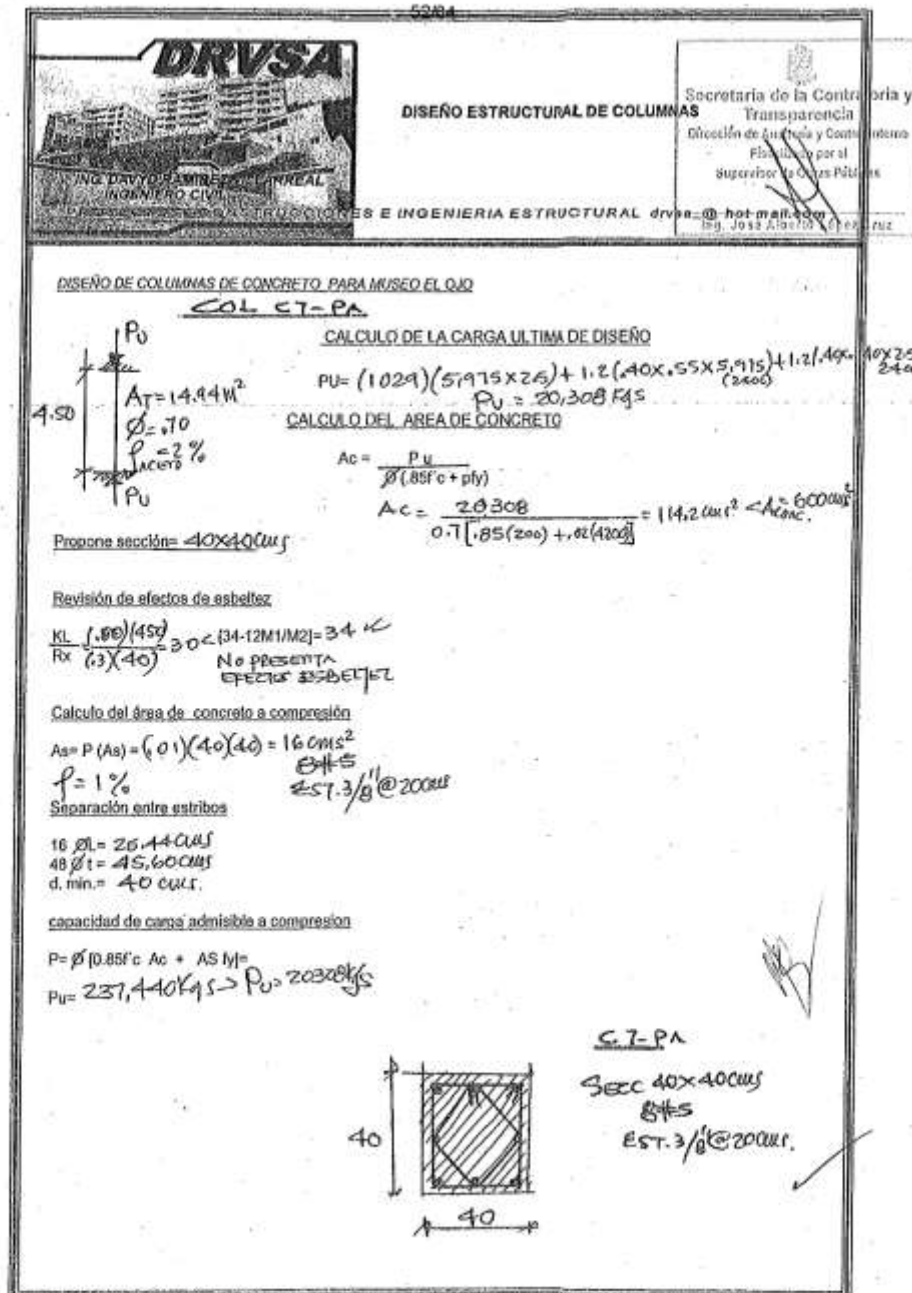 52/84
DRVSA
ING. DAVYD RAMIREZ
INGENIERO CIVIL
DISEÑO ESTRUCTURAL DE COLUMNAS
Secretaria de la Contraloria y
Transparencia
Dirección de Auditoria y Control Interno
Fiscalizado por el
Supervisor de Obras Públicas
Ing. José Alberto López Cruz
E INGENIERIA ESTRUCTURAL drvsa_@hotmail.com
DISEÑO DE COLUMNAS DE CONCRETO PARA MUSEO EL OJO
COL C7-PA
CALCULO DE LA CARGA ULTIMA DE DISEÑO
PU= (1029)(5.975x2.5)+1.2(.40x.55x5.975)+1.2(.40x.40x2.5
(2400) 240
PU = 20,308 Kgs
PU
4.50
AT=14.94 M²
Ø=.70
ρ ACERO =2%
PU
CALCULO DEL AREA DE CONCRETO
Ac = Pu
Ø(.85f'c + pfy)
Ac = 20308 = 114.2 cms² < Aconc. = 600 cms²
0.7[.85(200) + .02(4200)]
Propone sección= 40x40 cms
Revisión de efectos de esbeltez
KL = (.80)(450) = 30 < [34-12M1/M2]= 34
Rx (.3)(40)
NO PRESENTA
EFECTOS ESBELTEZ
Calculo del área de concreto a compresión
As= P (As) = (.01)(40)(40) = 16 cms²
8#5
ρ = 1%
EST. 3/8"@20cms
Separación entre estribos
16 ØL= 25.44 cms
48 Øt= 45.60 cms
d. min.= 40 cms.
capacidad de carga admisible a compresion
P= Ø [0.85f'c Ac + AS fy]=
Pu= 237,440 Kgs > PU= 20308 Kgs
C.7-PA
SECC 40x40 cms
8#5
EST. 3/8"@20cms.
40
40